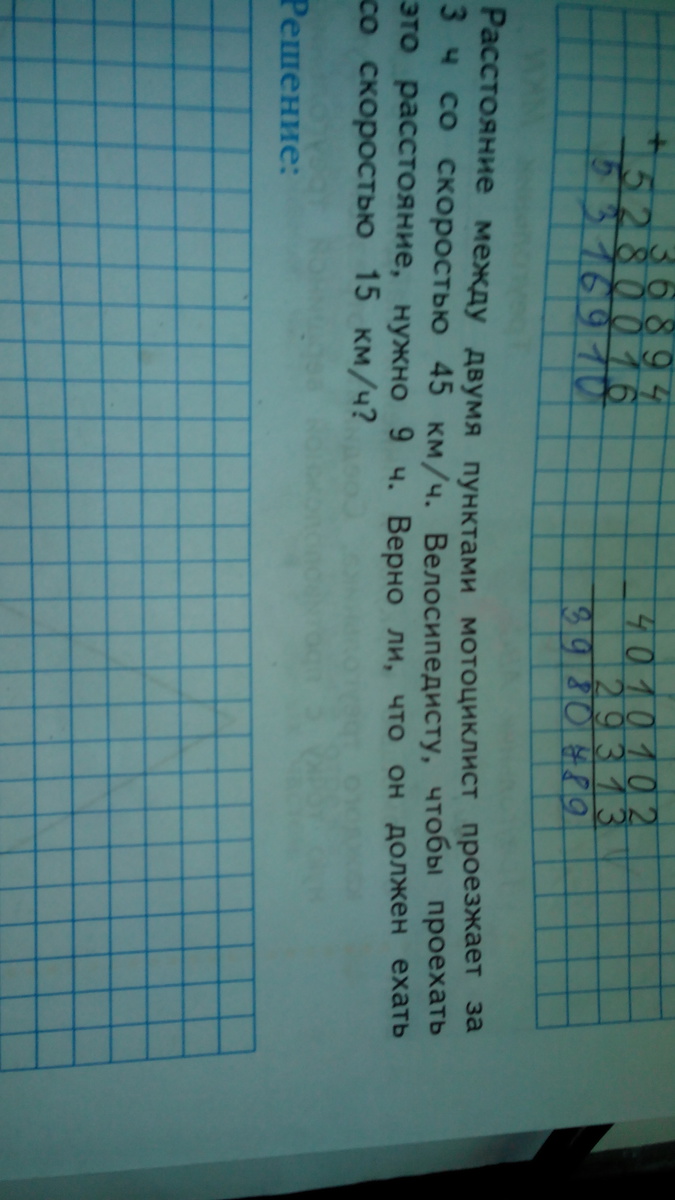 36894
+ 5280016
5316910
- 4010102
29313
3980789
Расстояние между двумя пунктами мотоциклист проезжает за
3 ч со скоростью 45 км/ч. Велосипедисту, чтобы проехать
это расстояние, нужно 9 ч. Верно ли, что он должен ехать
со скоростью 15 км/ч?
Решение: